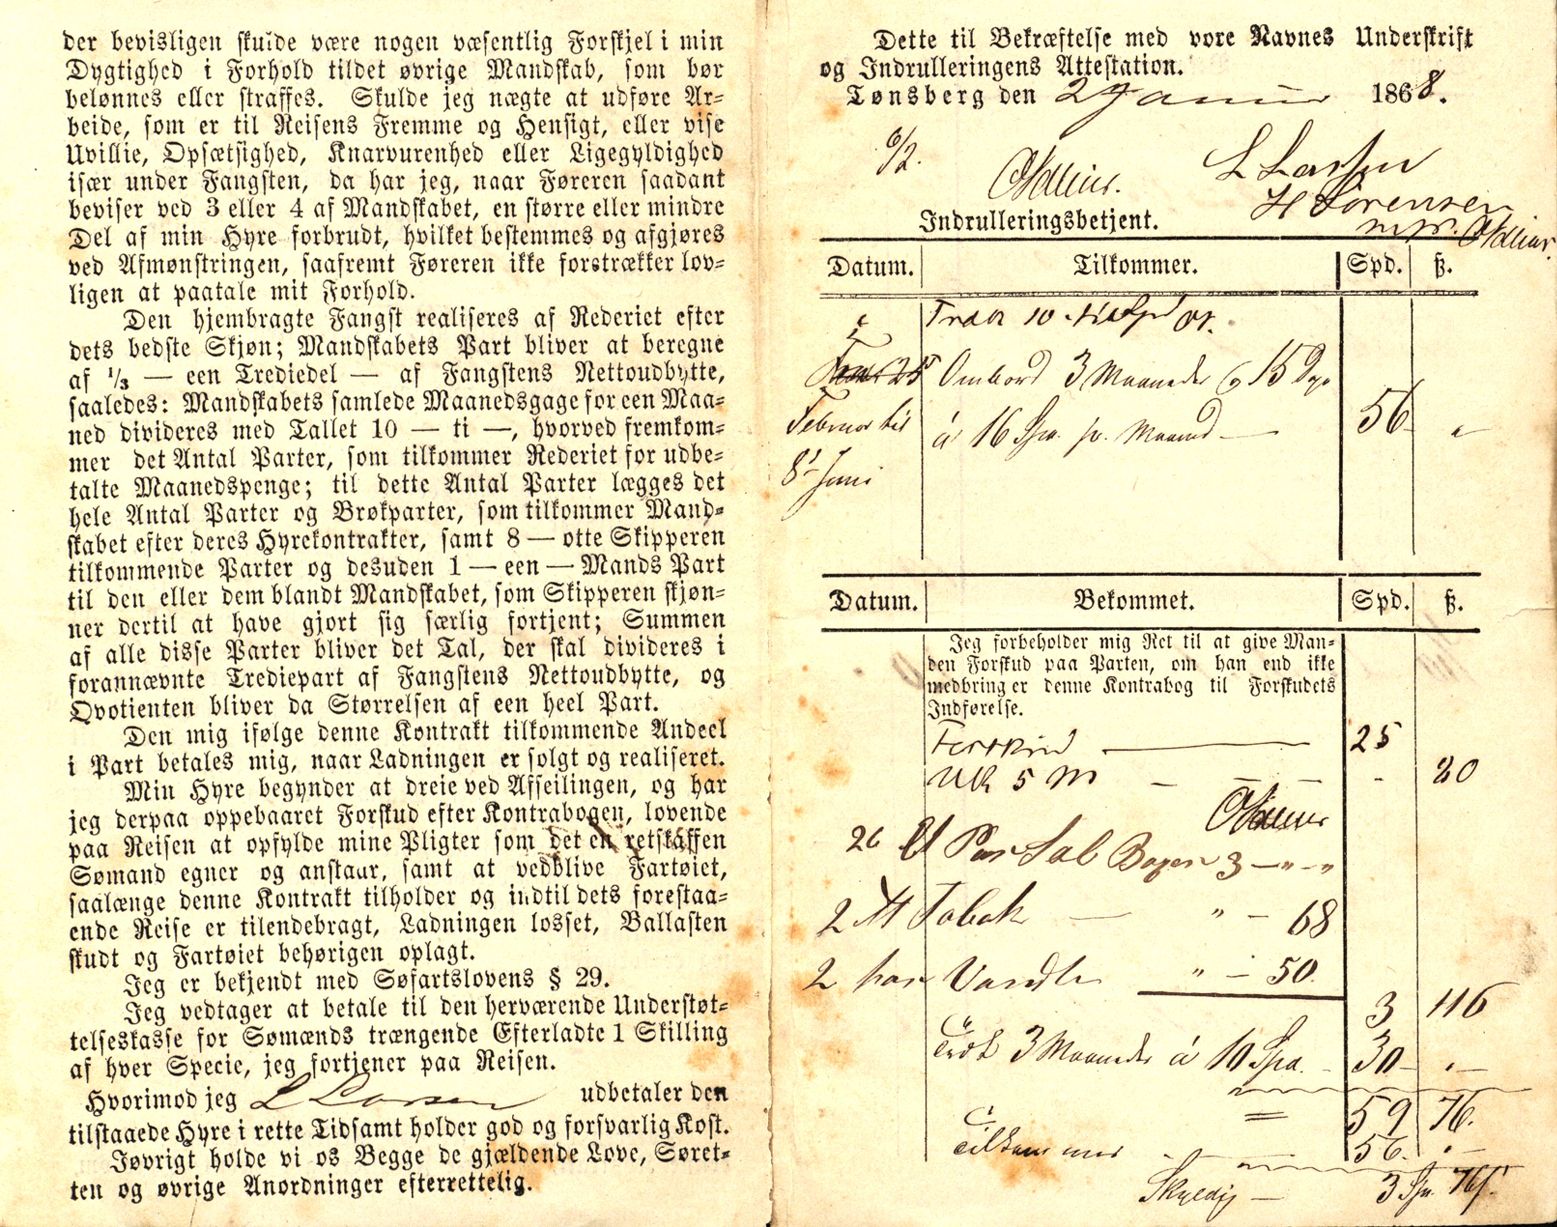 der bevisligen skulde være nogen væsentlig Forskjel i min
Dygtighed i Forhold tildet øvrige Mandskab, som bør
belønnes eller straffes. Skulde jeg nægte at udføre Ar-
beide, som er til Reisens Fremme og Hensigt, eller vise
Uvillie, Opsætsighed, Knarvurenhed eller Ligegyldighed
især under Fangsten, da har jeg, naar Føreren saadant
beviser ved 3 eller 4 af Mandskabet, en større eller mindre
Del af min Hyre forbrudt, hvilket bestemmes og afgjøres
ved Afmønstringen, saafremt Føreren ikke foretrækker lov-
ligen at paatale mit Forhold.
Den hjembragte Fangst realiseres af Rederiet efter
dets bedste Skjøn; Mandskabets Part bliver at beregne
af 1/3 — een Trediedel — af Fangstens Nettoudbytte,
saaledes: Mandskabets samlede Maanedsgage for een Maa-
ned divideres med Tallet 10 — ti —, hvorved fremkom-
mer det Antal Parter, som tilkommer Rederiet for udbe-
talte Maanedspenge; til dette Antal Parter lægges det
hele Antal Parter og Brøkparter, som tilkommer Mand-
skabet efter deres Hyrekontrakter, samt 8 — otte Skipperen
tilkommende Parter og desuden 1 — een — Mands Part
til den eller dem blandt Mandskabet, som Skipperen skjøn-
ner dertil at have gjort sig særlig fortjent; Summen
af alle disse Parter bliver det Tal, der skal divideres i
forannævnte Trediepart af Fangstens Nettoudbytte, og
Qvotienten bliver da Størrelsen af een heel Part.
Den mig ifølge denne Kontrakt tilkommende Andeel
i Part betales mig, naar Ladningen er solgt og realiseret.
Min Hyre begynder at dreie ved Afseilingen, og har
jeg derpaa oppebaaret Forskud efter Kontrabogen, lovende
paa Reisen at opfylde mine Pligter som det en retskaffen
Sømand egner og anstaar, samt at vedblive Fartøiet,
saalænge denne Kontrakt tilholder og indtil dets forestaa-
ende Reise er tilendebragt, Ladningen losset, Ballasten
skudt og Fartøiet behørigen oplagt.
Jeg er bekjendt med Søfartslovens § 29.
Jeg vedtager at betale til den herværende Understøt-
telseskasse for Sømænds trængende Efterladte 1 Skilling
af hver Specie, jeg fortjener paa Reisen.
Hvorimod jeg L Larsen udbetaler den
tilstaaede Hyre i rette Tid samt holder god og forsvarlig Kost.
Iøvrigt holde vi os Begge de gjældende Love, Søret-
ten og øvrige Anordninger efterrettelig.
Dette til Bekræftelse med vore Navnes Underskrift
og Indrulleringens Attestation.
Tønsberg den 2 Januar 1868.
L Larsen
H Sørensen
Indrulleringsbetjent.
Datum. Tilkommer. Spd. ß.
Ombord 3 Maaneder og 15 Dage
Februar til à 16 Spd. pr. Maaned — 56 "
8de Juni
Datum. Bekommet. Spd. ß.
Jeg forbeholder mig Ret til at give Man-
den Forskud paa Parten, om han end ikke
medbringer denne Kontrabog til Forskudets
Indførelse.
Forskud — 25
5 M — 80
26 Par 3 — " — "
2 Tobak — " — 68
2 par Vandter " — 50
3 116
Trek 3 Maaneder à 10 Spd. — 30 — "
= 59 76.
Tilkommer 56. "
Skyldig — 3 Spd. 76 ß.